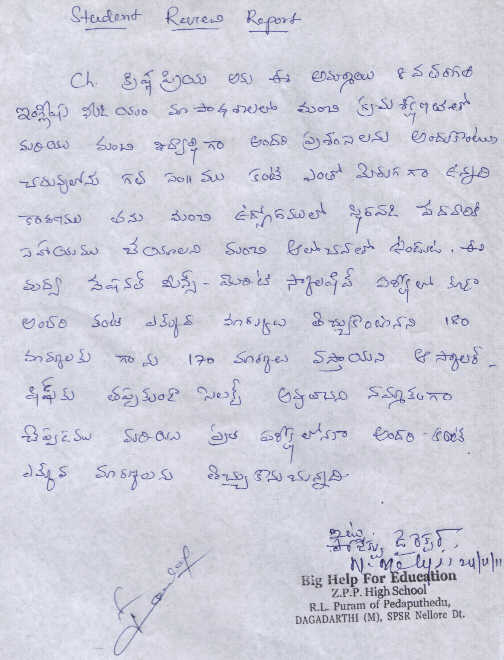 Student Review Report
Ch. క్రిష్ణప్రియ అను ఈ అమ్మాయి 8 వ తరగతి
ఇంగ్లీషు మీడియం మా పాఠశాలలో మంచి క్రమశిక్షణతో
మరియు మంచి విద్యార్థిగా అందరి ప్రశంసలను అందుకొంటూ
చదువులోను గత సం॥ము కంటే ఎంతో మెరుగగా ఉన్నది
కారణము తను మంచి ఉద్యోగములో స్థిరపడి పేదవారికి
సహాయము చేయాలని మంచి ఆలోచనలో ఉండుట. ఈ
మధ్య నేషనల్ మీన్స్ - మెరిట్ స్కాలషిప్ పరీక్షలో కూడా
అందరి కంటే ఎక్కువ మార్కులు తెచ్చుకొంటానని 180
మార్కులకు గాను 170 మార్కులు వస్తాయని ఆ స్కాలర్-
షిప్‌కు తప్పకుండా సెలక్ట్ అవుతానని నమ్మకంగా
చెప్పడము మరియు ప్రతి పరీక్షలోనూ అందరి కంటే
ఎక్కువ మార్కులను తెచ్చుకొనుచున్నది.
ఇట్లు
24/11/11
Big Help For Education
Z.P.P. High School
R.L. Puram of Pedaputhedu,
DAGADARTHI (M), SPSR Nellore Dt.